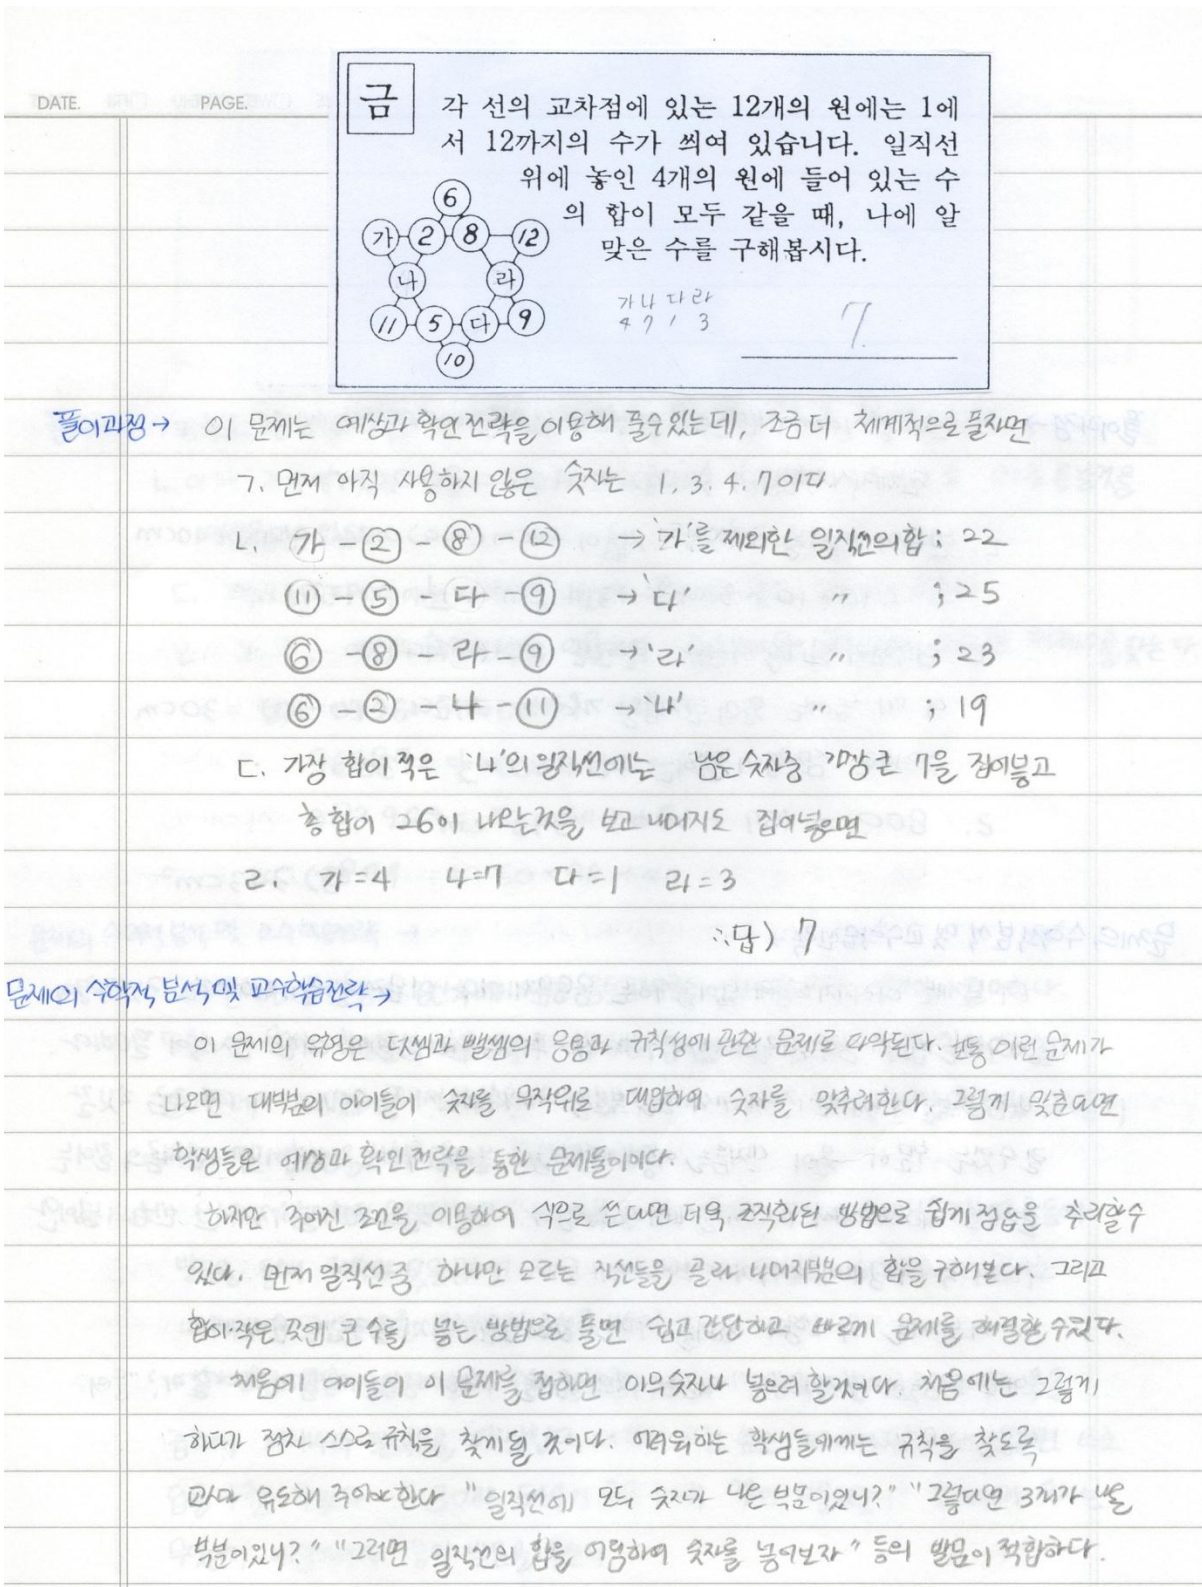 DATE. PAGE.
금
각 선의 교차점에 있는 12개의 원에는 1에
서 12까지의 수가 씌여 있습니다. 일직선
위에 놓인 4개의 원에 들어 있는 수
의 합이 모두 같을 때, 나에 알
맞은 수를 구해봅시다.
6
가 2 8 12
나 라
11 5 다 9
10
가 나 다 라
4 7 1 3
7.
풀이과정 → 이 문제는 예상과 확인 전략을 이용해 풀수있는데, 조금 더 체계적으로 풀자면
ㄱ. 먼저 아직 사용하지 않은 숫자는 1. 3. 4. 7 이다
ㄴ. 가 - 2 - 8 - 12 → '가'를 제외한 일직선의 합 ; 22
11 - 5 - 다 - 9 → '다' 〃 ; 25
6 - 8 - 라 - 9 → '라' 〃 ; 23
6 - 2 - 나 - 11 → '나' 〃 ; 19
ㄷ. 가장 합이 적은 '나'의 일직선에는 남은 숫자중 가장 큰 7을 집어넣고
총합이 26이 나오는것을 보고 나머지도 집어넣으면
ㄹ. 가=4 나=7 다=1 라=3
∴답) 7
문제의 수학적 분석 및 교수학습전략 →
이 문제의 유형은 덧셈과 뺄셈의 응용과 규칙성에 관한 문제로 파악된다. 보통 이런 문제가
나오면 대부분의 아이들이 숫자를 무작위로 대입하여 숫자를 맞추려한다. 그렇게 맞춘다면
학생들은 예상과 확인 전략을 통한 문제풀이이다.
하지만 주어진 조건을 이용하여 식으로 쓴다면 더욱 조직화된 방법으로 쉽게 정답을 추리할수
있다. 먼저 일직선 중 하나만 모르는 직선들을 골라 나머지부분의 합을 구해본다. 그리고
합이 작은 곳엔 큰 수를 넣는 방법으로 풀면 쉽고 간단하고 빠르게 문제를 해결할 수있다.
처음에 아이들이 이 문제를 접하면 아무숫자나 넣으려 할것이다. 처음에는 그렇게
하다가 점차 스스로 규칙을 찾게 될 것이다. 어려워하는 학생들에게는 규칙을 찾도록
교사가 유도해 주어야 한다 "일직선에 모두 숫자가 나온 부분이있니?" "그렇다면 3개가 나온
부분이있니?" "그러면 일직선의 합을 이용하여 숫자를 넣어보자" 등의 발문이 적합하다.